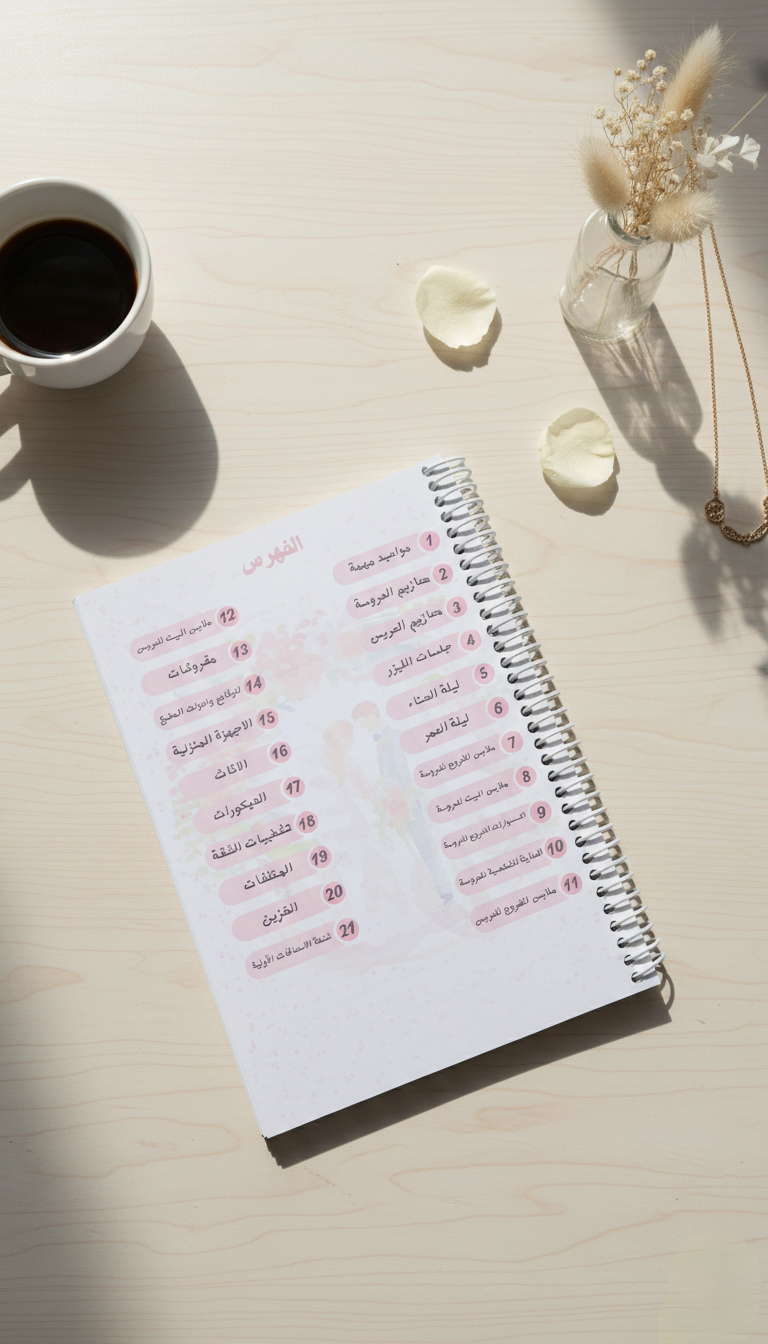 الفهرس
1 مواعيد مهمة
2 معازيم العروسة
3 معازيم العريس
4 جلسات الليزر
5 ليلة الحناء
6 ليلة العمر
7 ملابس الخروج للعروسة
8 ملابس البيت للعروسة
9 اكسسوارات الخروج للعروسة
10 العناية الشخصية للعروسة
11 ملابس الخروج للعريس
12 ملابس البيت للعريس
13 مفروشات
14 المطبخ
15 الاجهزة المنزلية
16 الاثاث
17 الديكورات
18 تشطيبات الشقة
19 المنظفات
20 الخزين
21 شنطة الاسعافات الأولية